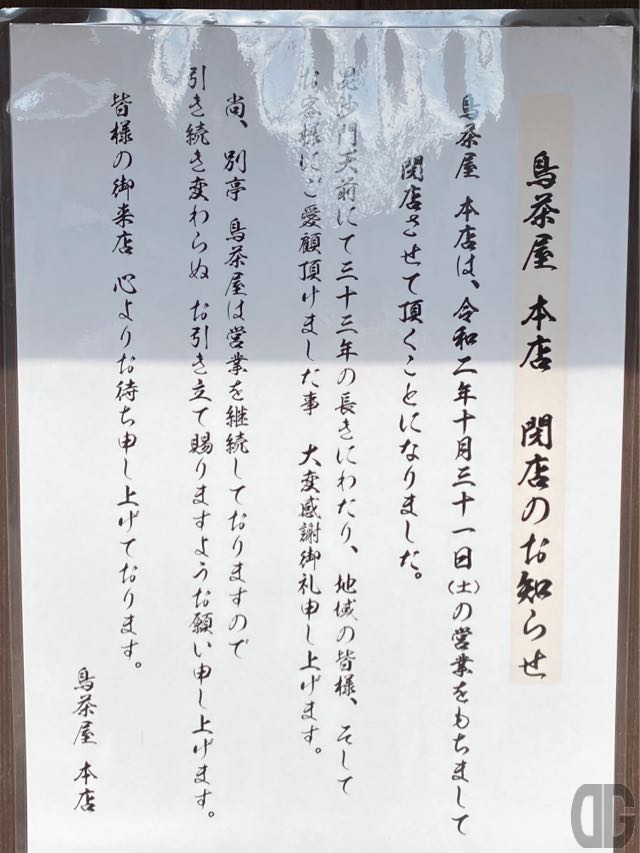 鳥茶屋 本店 閉店のお知らせ
鳥茶屋 本店は、令和二年十月三十一日(土)の営業をもちまして
閉店させて頂くことになりました。
毘沙門天前にて三十三年の長きにわたり、地域の皆様、そして
お客様にご愛顧頂けました事 大変感謝御礼申し上げます。
尚、別亭 鳥茶屋は営業を継続しておりますので
引き続き変わらぬ お引き立て賜りますようお願い申し上げます。
皆様の御来店 心よりお待ち申し上げております。
鳥茶屋 本店
DG